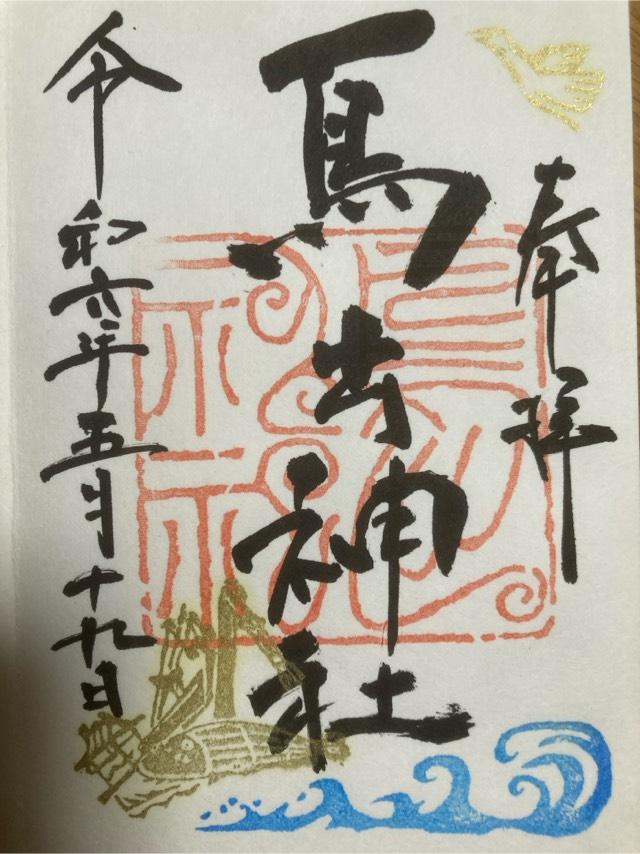 奉拝
鳥出神社
令和六年五月十九日